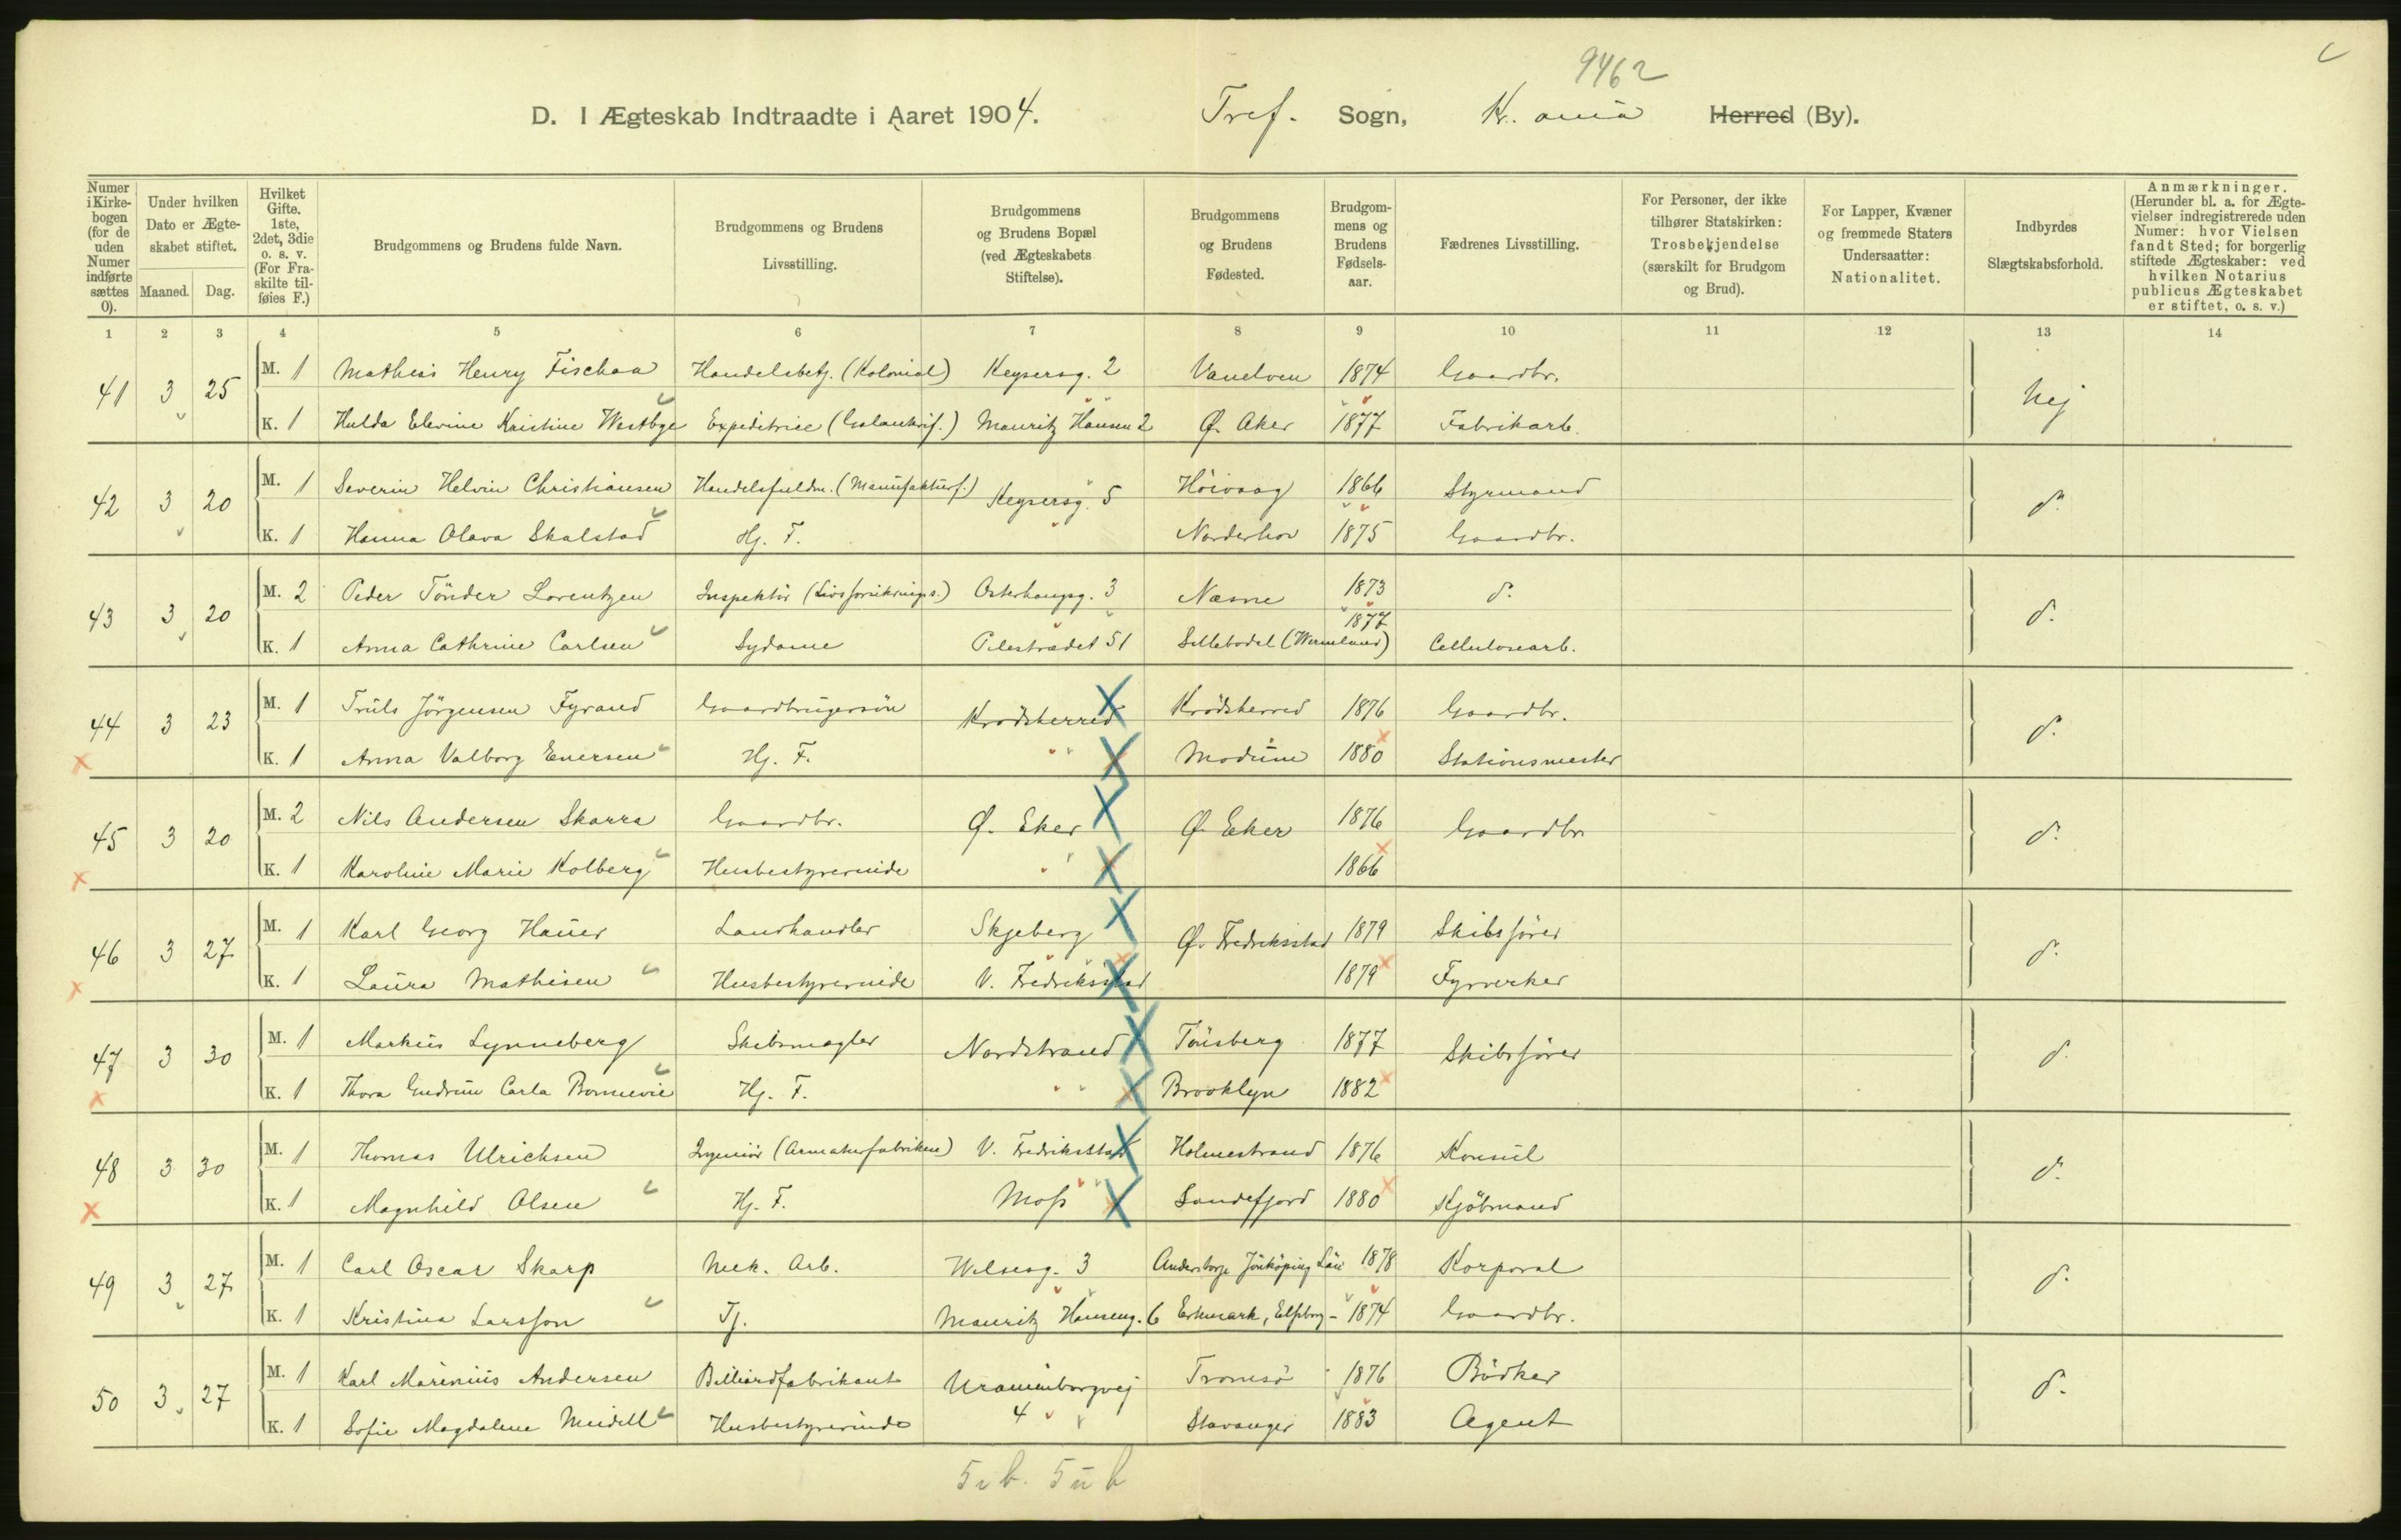 9462
D. I Ægteskab Indtraadte i Aaret 1904. Tref. Sogn, Kr. ania Herred (By).
Numer i Kirkebogen (for de uden Numer indførte sættes 0).
Under hvilken Dato er Ægteskabet stiftet.
Maaned. Dag.
Hvilket Gifte. 1ste, 2det, 3die o. s. v. (For Fraskilte tilføies F.)
Brudgommens og Brudens fulde Navn.
Brudgommens og Brudens Livsstilling.
Brudgommens og Brudens Bopæl (ved Ægteskabets Stiftelse).
Brudgommens og Brudens Fødested.
Brudgommens og Brudens Fødselsaar.
Fædrenes Livsstilling.
For Personer, der ikke tilhører Statskirken: Trosbekjendelse (særskilt for Brudgom og Brud).
For Lapper, Kvæner og fremmede Staters Undersaatter: Nationalitet.
Indbyrdes Slægtskabsforhold.
Anmærkninger. (Herunder bl. a. for Ægtevielser indregistrerede uden Numer: hvor Vielsen fandt Sted; for borgerlig stiftede Ægteskaber: ved hvilken Notarius publicus Ægteskabet er stiftet, o. s. v.)
1 2 3 4 5 6 7 8 9 10 11 12 13 14
41 3 25 M. 1 Mathias Henry Fischaa Handelsbetj. (Kolonial) Keysersg. 2 Vanelven 1874 Gaardbr. Nej
K. 1 Hulda Elevine Kristine Westbye Expeditrice (Galanterif.) Mauritz Hansen 2 Ø. Aker 1877 Fabrikarb.
42 3 20 M. 1 Severin Helvin Christiansen Handelsfuldm. (Manufakturf.) Keysersg. 5 Höivaag 1866 Styrmand d.
K. 1 Hanna Olava Skalstad Hj. F. Norderhov 1875 Gaardbr.
43 3 20 M. 2 Peder Tönder Lorentzen Inspektör (Livsforsikrings.) Osterhausg. 3 Næsne 1873 d. d.
K. 1 Anna Cathrine Carlsen Sydame Pilestrædet 51 Sillebodal (Wermland) 1877 Cellulosearb.
44 3 23 M. 1 Truls Jörgensen Fyrand Gaardbrugersön Krödsherred Krödsherred 1876 Gaardbr. d.
K. 1 Anna Valborg Enersen Hj. F. " " Modum 1880 Stationsmester
45 3 20 M. 2 Nils Andersen Skarra Gaardbr. Ø. Eker Ø. Eker 1876 Gaardbr. d.
K. 1 Karoline Marie Kolberg Husbestyrerinde " " 1866
46 3 27 M. 1 Karl Georg Hauer Landhandler Skjeberg Ø. Fredriksstad 1879 Skibsförer d.
K. 1 Laura Mathisen Husbestyrerinde V. Fredriksstad 1879 Fyrverker
47 3 30 M. 1 Markus Lynneberg Skibsmægler Nordstrand Tönsberg 1877 Skibsförer d.
K. 1 Thora Gudrun Carla Bonnevie Hj. F. " " Brooklyn 1882
48 3 30 M. 1 Thomas Ulrichsen Ingeniör (Armaturfabriken) V. Fredriksstad Holmestrand 1876 Konsul d.
K. 1 Magnhild Olsen Hj. F. Moss Sandefjord 1880 Kjöbmand
49 3 27 M. 1 Carl Oscar Skarp Mek. Arb. Welsesg. 3 Anderstorp Jönköping Län 1878 Korporal d.
K. 1 Kristina Larsson Tj. Mauritz Hanseng. 6 Elfsborg - 1874 Gaardbr.
50 3 27 M. 1 Karl Marinius Andersen Billiardfabrikant Uranienborgvej Tromsö 1876 Bödker d.
K. 1 Sofie Magdalene Meidell Husbestyrerinde 4 Stavanger 1883 Agent